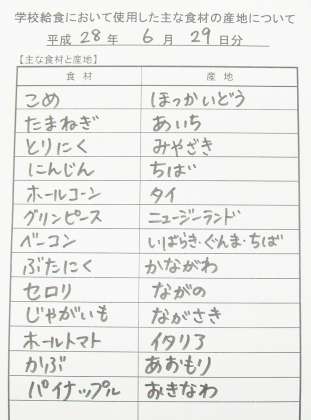 学校給食において使用した主な食材の産地について
平成 28 年 6 月 29 日分
【主な食材と産地】
食材 産地
こめ ほっかいどう
たまねぎ あいち
とりにく みやざき
にんじん ちば
ホールコーン タイ
グリンピース ニュージーランド
ベーコン いばらき・ぐんま・ちば
ぶたにく かながわ
セロリ ながの
じゃがいも ながさき
ホールトマト イタリア
かぶ あおもり
パイナップル おきなわ